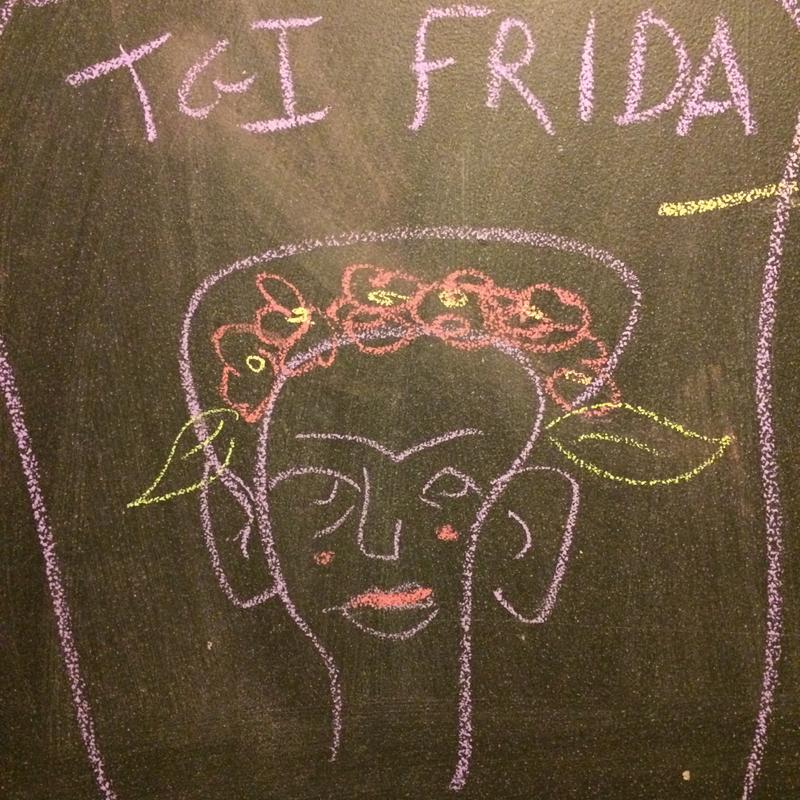 TGI FRIDA